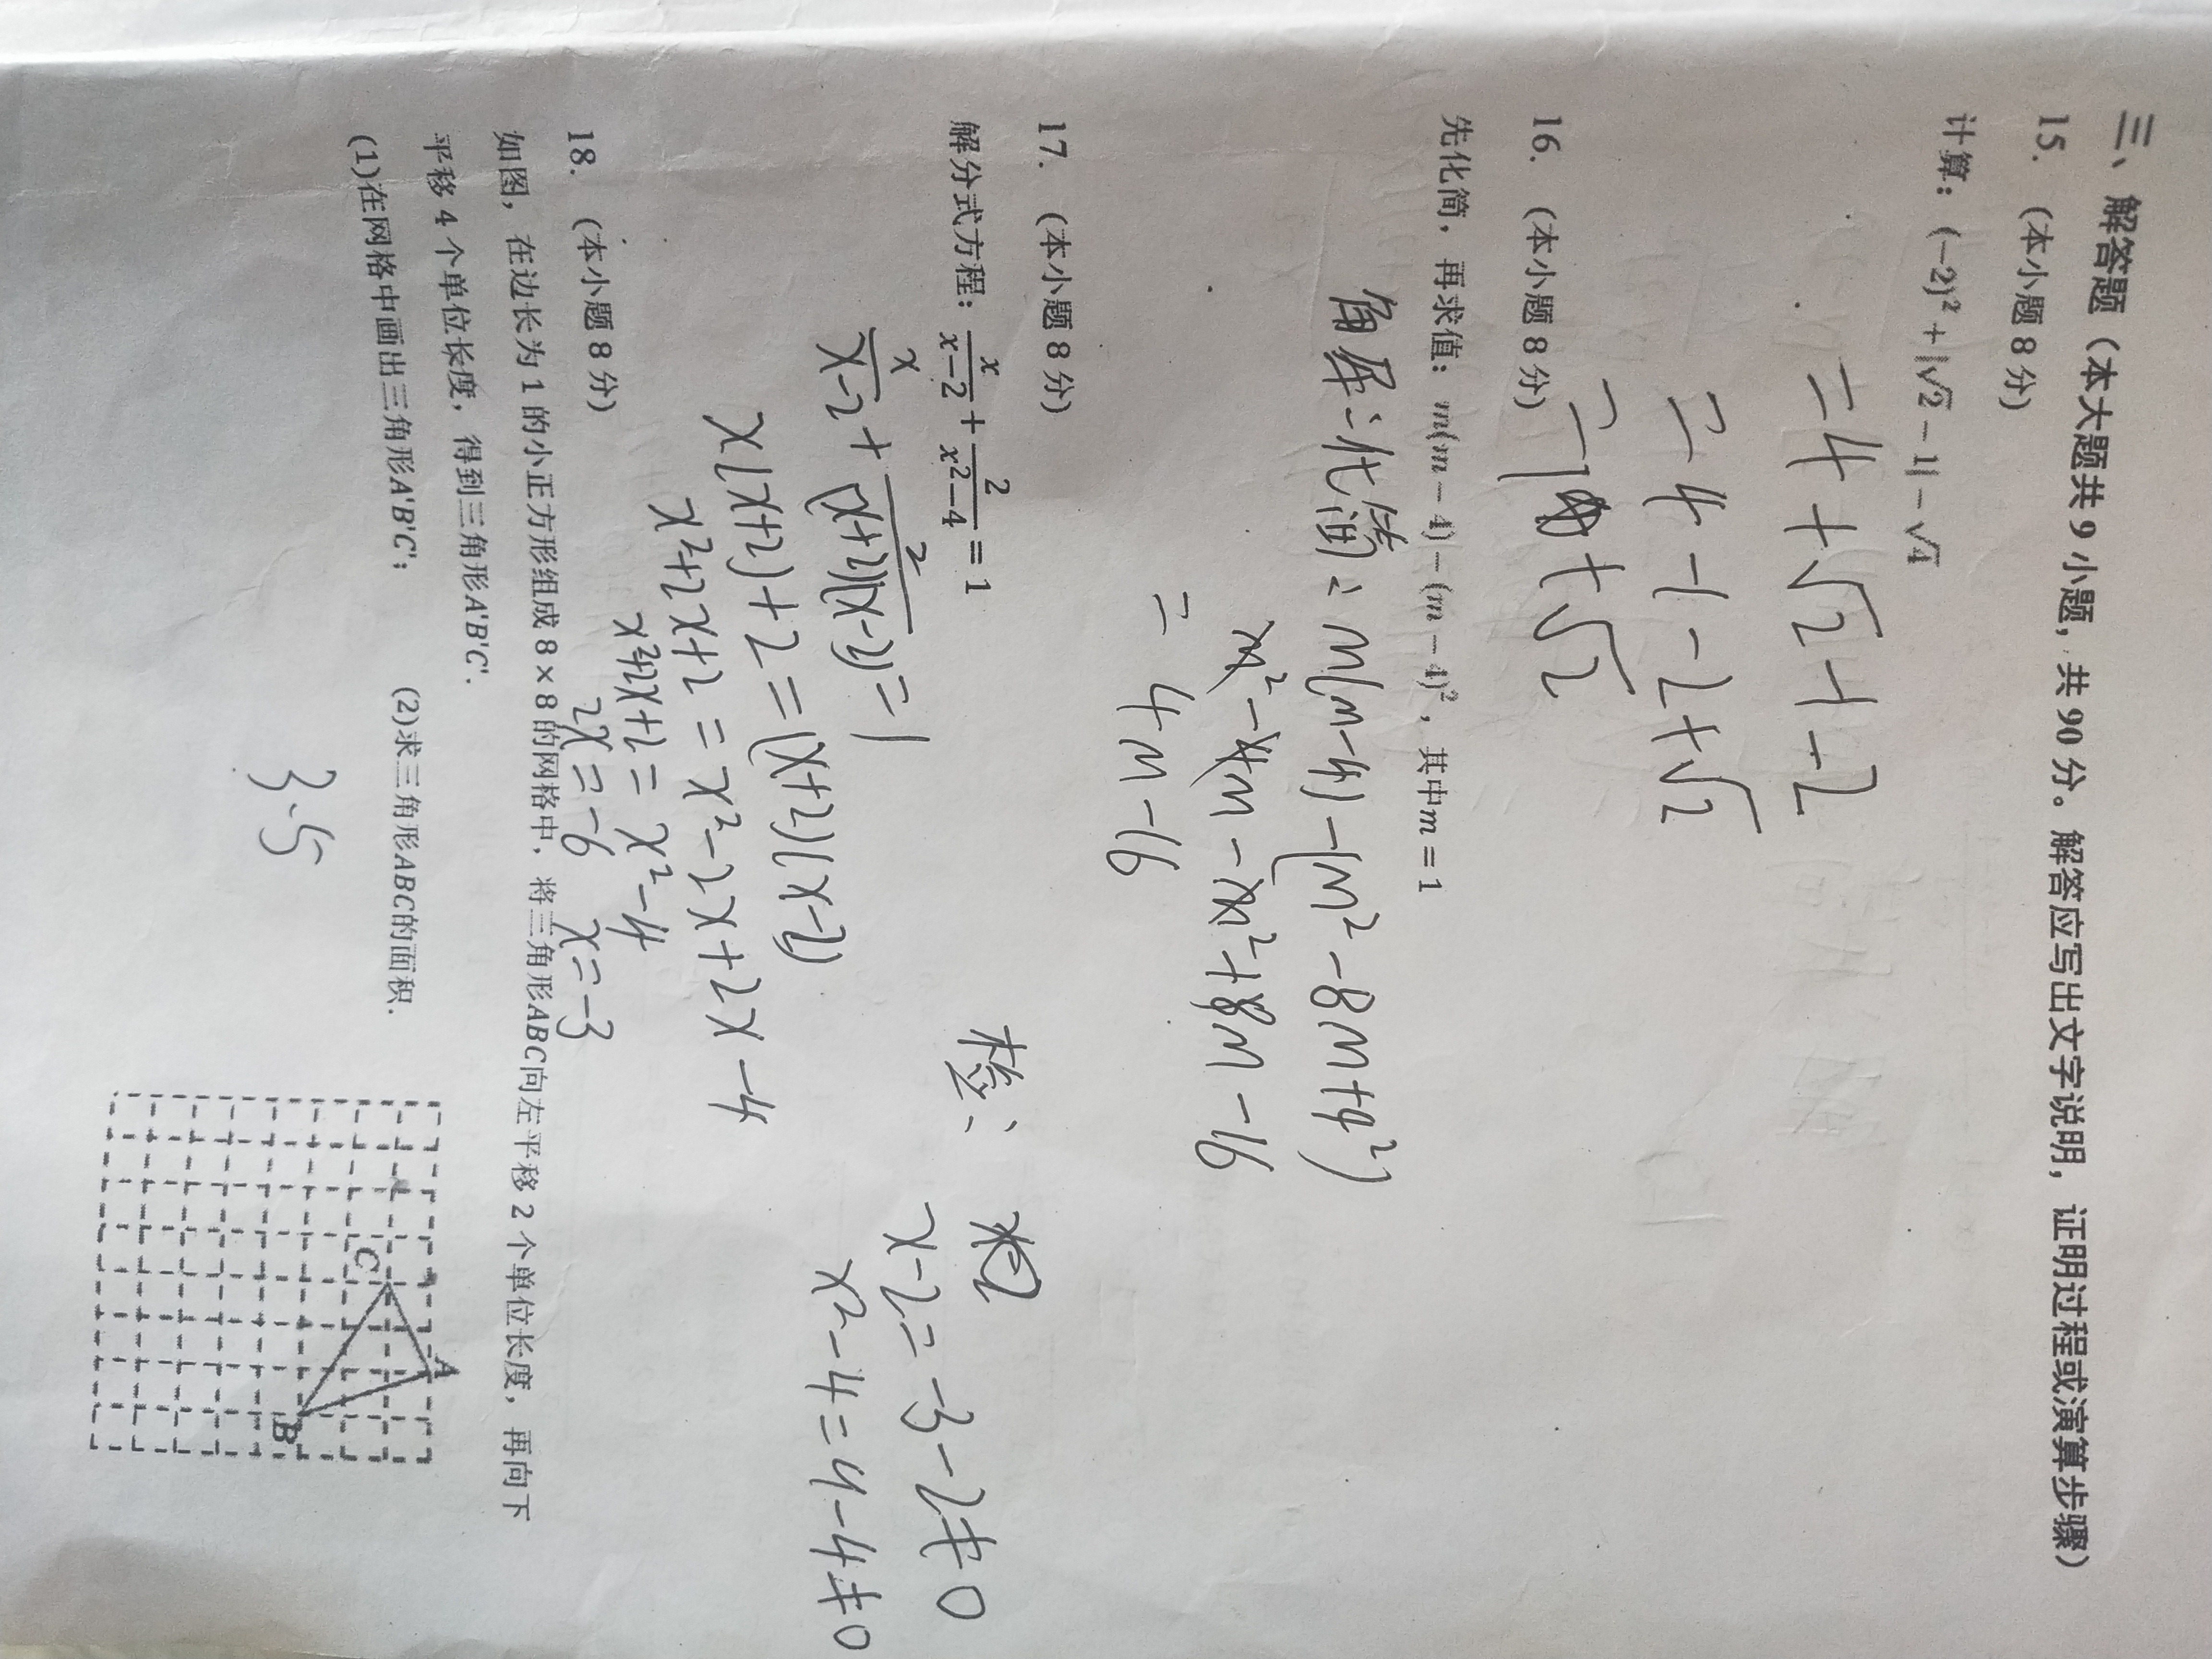 三、解答题（本大题共 9 小题，共 90 分。解答应写出文字说明，证明过程或演算步骤）
15. （本小题 8 分）
计算：(−2)² + |√2 − 1| − √4
= 4 + √2 - 1 - 2
= 4 - 1 - 2 + √2
= 1 + √2
16. （本小题 8 分）
先化简，再求值：m(m − 4) − (m − 4)²，其中m = 1
化简: m(m-4) - (m² - 8m + 4²)
m² - 4m - m² + 8m - 16
= 4m - 16
17. （本小题 8 分）
解分式方程：x/(x−2) + 2/(x²−4) = 1
x/(x-2) + 2/((x+2)(x-2)) = 1
x(x+2) + 2 = (x+2)(x-2)
x² + 2x + 2 = x² - 2x + 2x - 4
x² + 2x + 2 = x² - 4
2x = -6 x = -3
检:
x - 2 = -3 - 2 ≠ 0
x² - 4 = 4 - 4 ≠ 0
18. （本小题 8 分）
如图，在边长为 1 的小正方形组成 8 × 8 的网格中，将三角形ABC向左平移 2 个单位长度，再向下
平移 4 个单位长度，得到三角形A'B'C'.
(1)在网格中画出三角形A'B'C'； (2)求三角形ABC的面积.
3.5
A
C
B